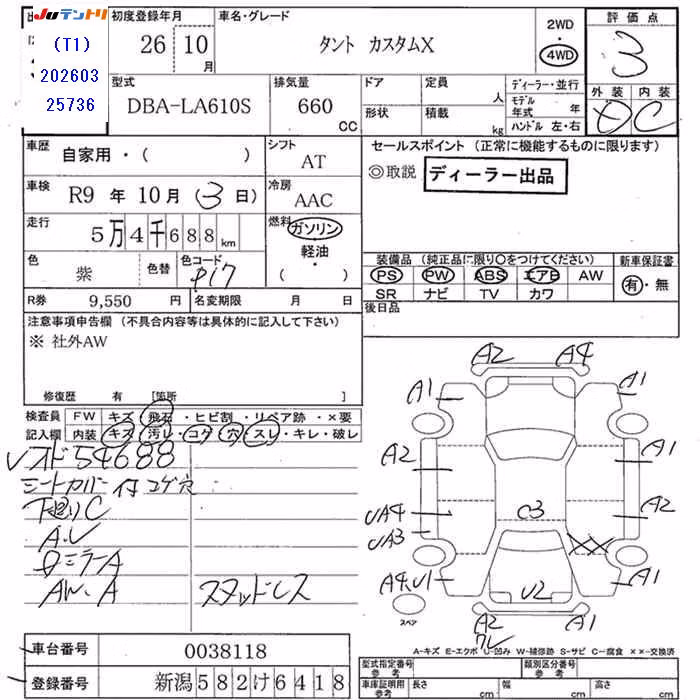 Juテントリ
(T1)
202603
25736
初度登録年月
26 10
月
車名・グレード
タント カスタムX
2WD
4WD
評価点
3
外装 内装
D C
型式
DBA-LA610S
排気量
660
CC
ドア
形状
定員
人
積載
kg
ディーラー・並行
モデル年式 年
ハンドル 左・右
車歴
自家用・( )
シフト
AT
車検
R9 年 10 月 (3 日)
冷房
AAC
走行
5万4千688 km
燃料
ガソリン
軽油・
( )
色
紫
色替
色コード
P17
R券
9,550 円
名変期限 月 日
セールスポイント (正常に機能するものに限ります)
◎取説
ディーラー出品
装備品 (純正品に限り○をつけてください)
PS PW ABS エアB AW
SR ナビ TV カワ
新車保証書
有・無
後日品
注意事項申告欄 (不具合内容等は具体的に記入して下さい)
※ 社外AW
修復歴 有 [箇所 ]
検査員 FW キズ・飛石・ヒビ割・リペア跡・×要
記入欄 内装 キズ・汚レ・コゲ・穴・スレ・キレ・破レ
レオド 54688
シートカバー付 コゲ穴
下廻りC
A.U
ロミラーA
AW.A
スタッドレス
A2 A4
A1 A1
A2 A1
C3
UA4 A2
UA3
XX
A4.U1 A1
U2
スペア
A2 A2
ワレ
A-キズ E-エクボ U-凹み W-補修跡 S-サビ C-腐食 ××-交換済
車台番号
0038118
登録番号
新潟582け6418
型式指定番号
参考
類別区分番号
参考
車庫証明用
参考
長さ cm
幅 cm
高さ cm